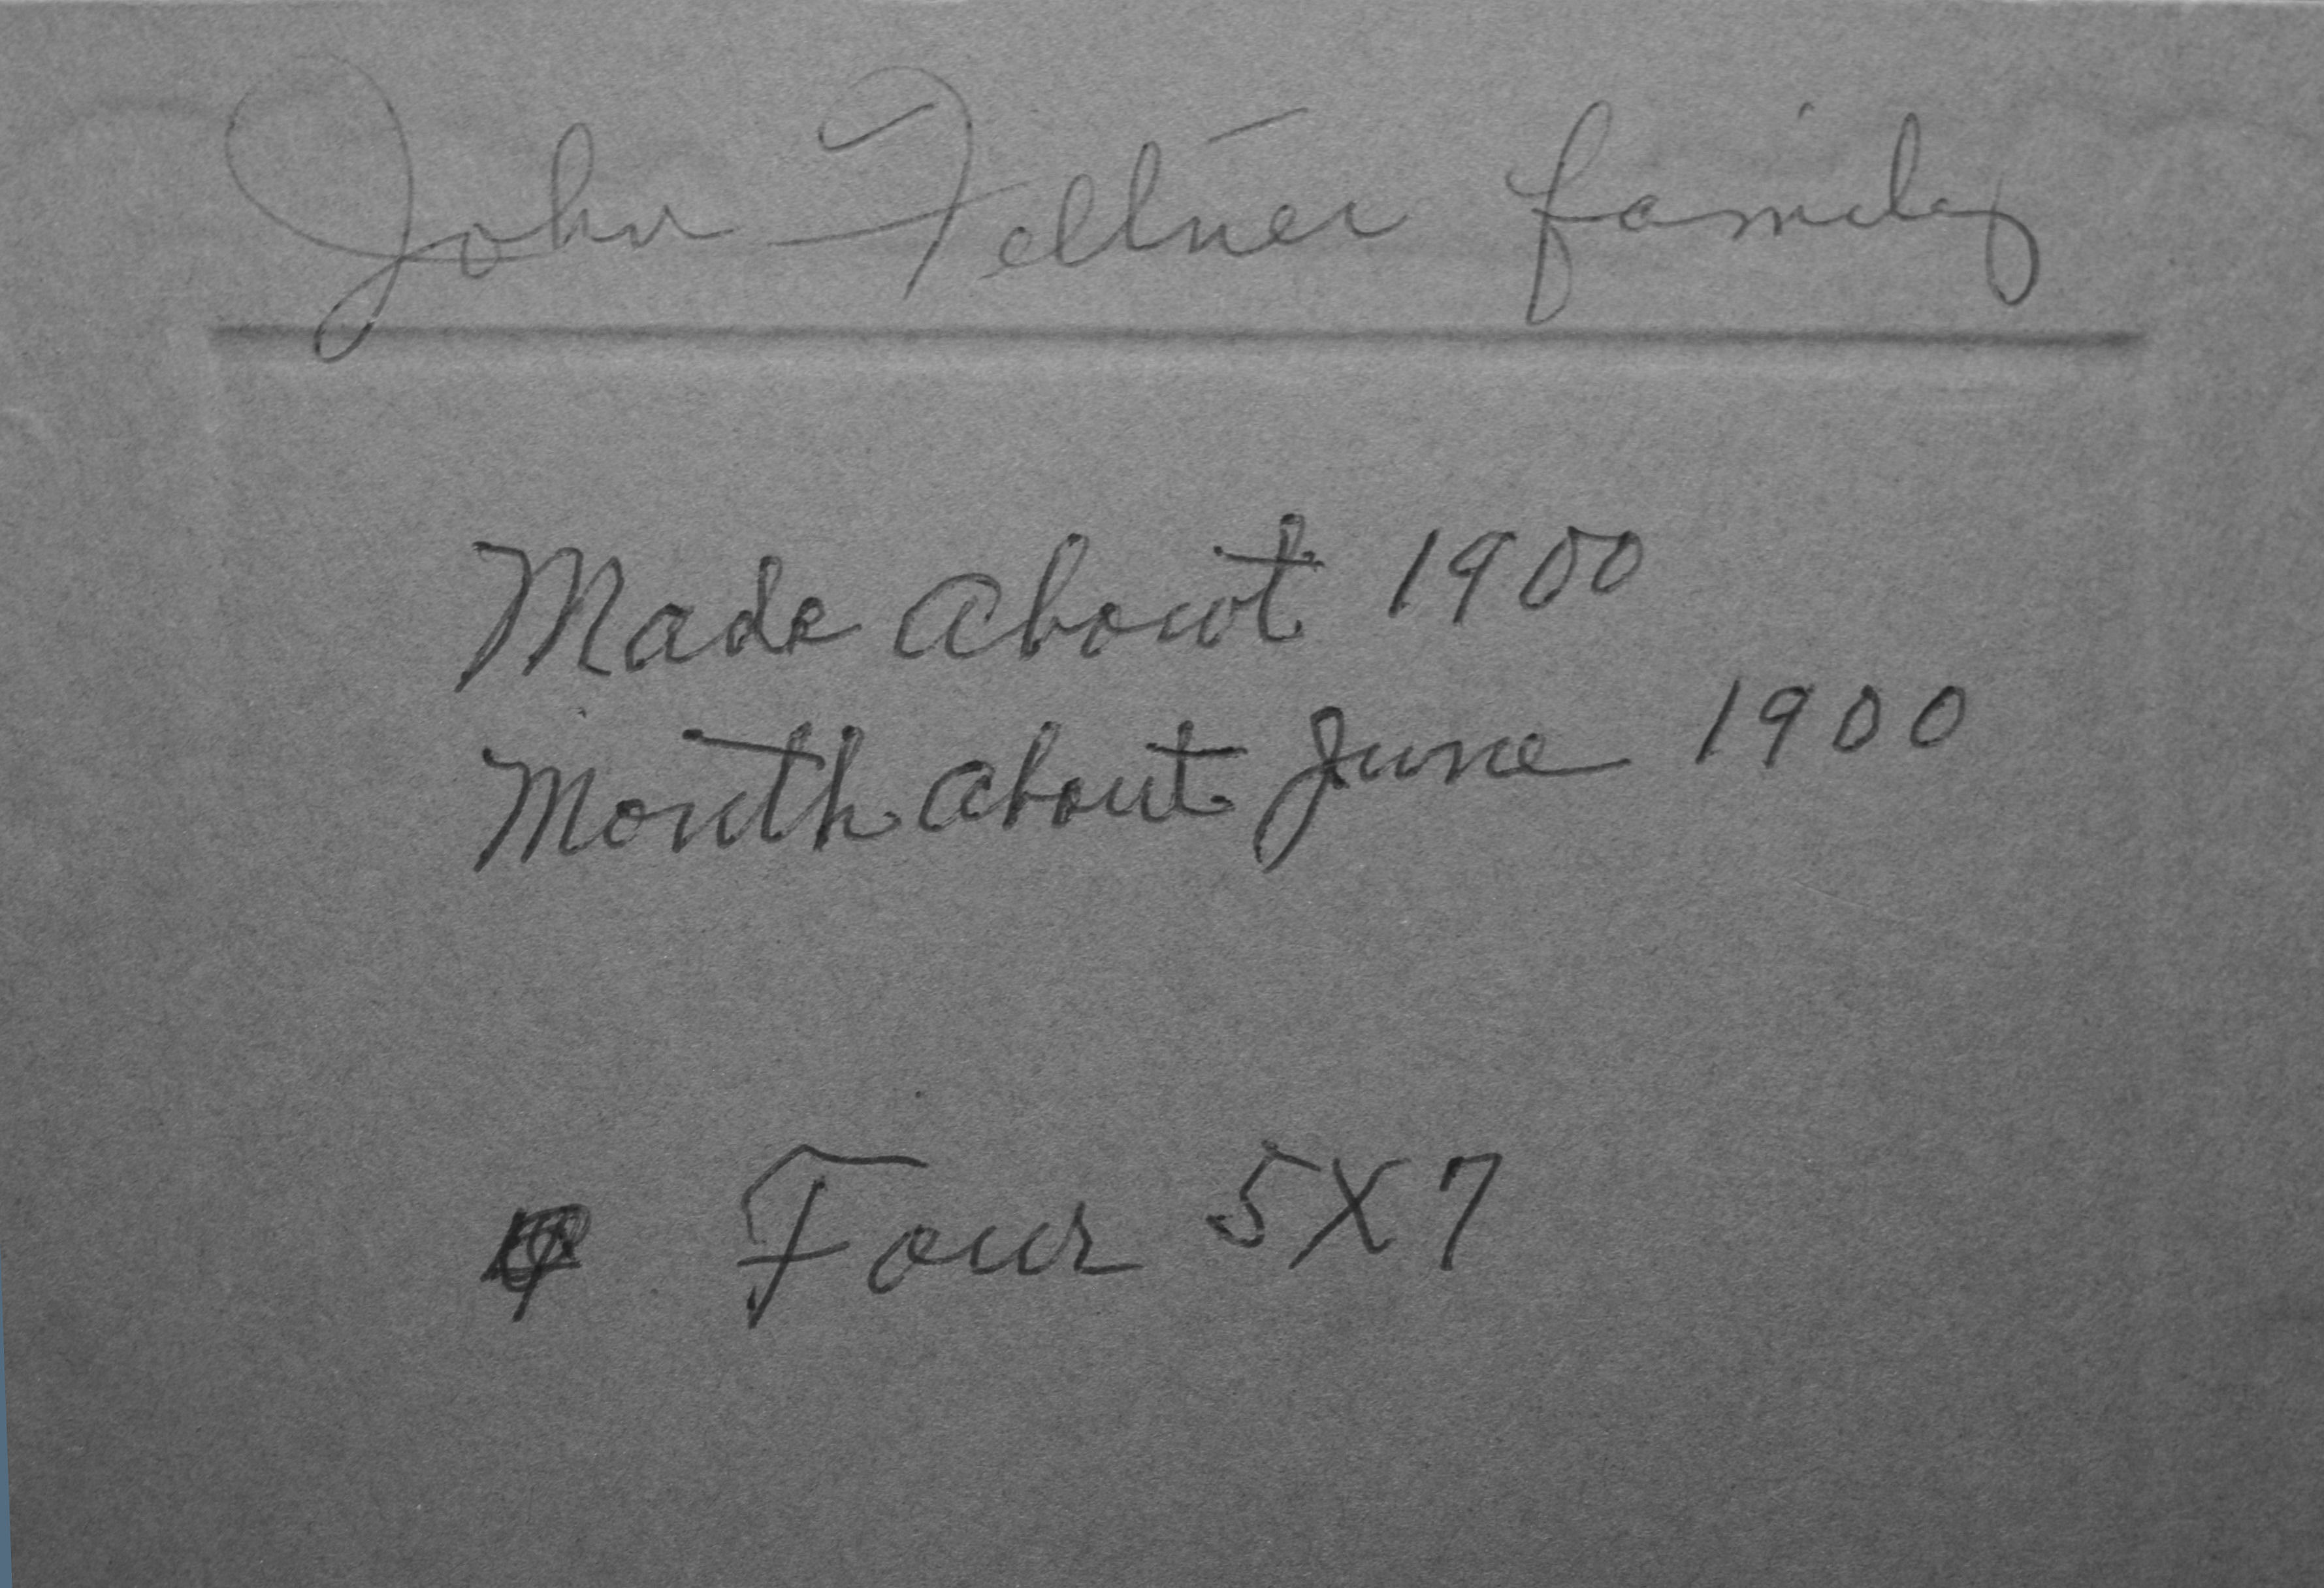 John Feltner family
Made About 1900
Month About June 1900
Four 5X7